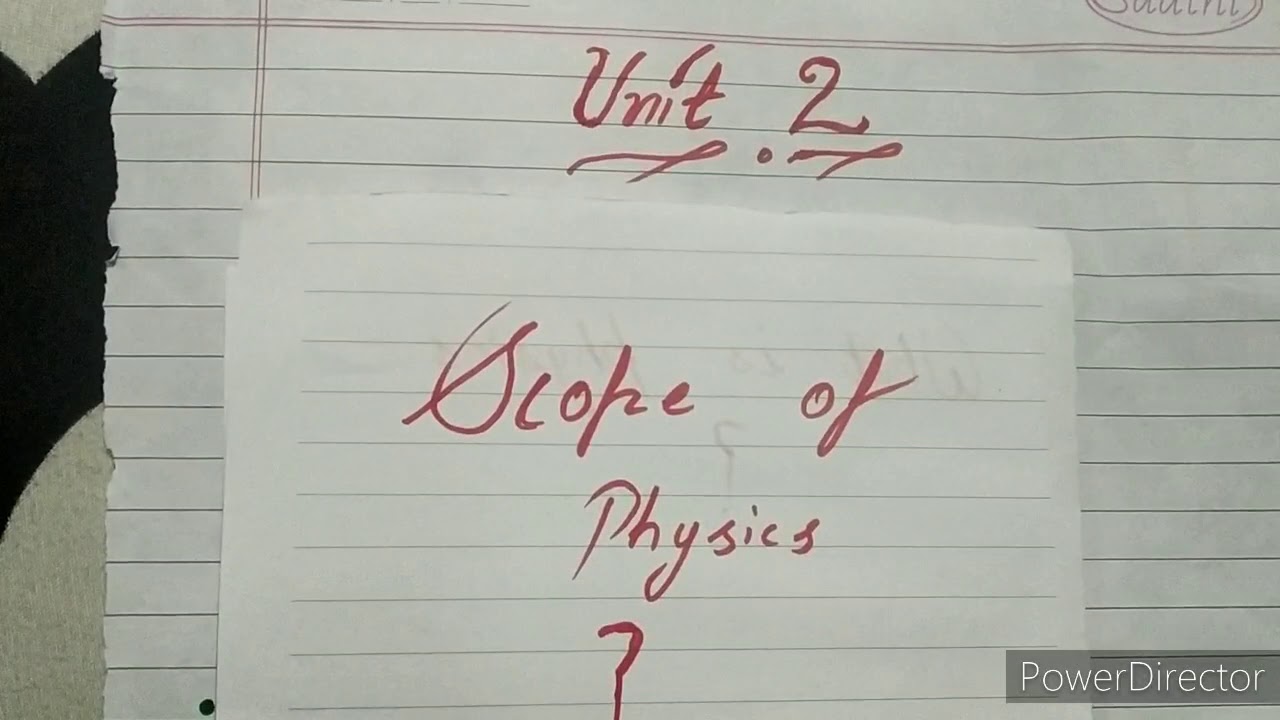 Saathi
Unit 2
Scope of
Physics
?
PowerDirector